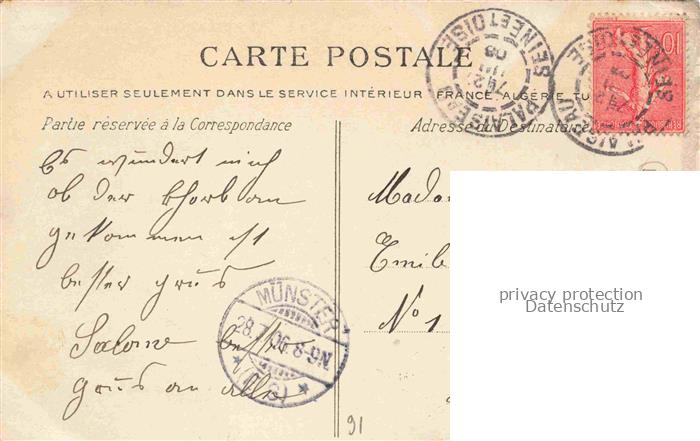 CARTE POSTALE
A UTILISER SEULEMENT DANS LE SERVICE INTÉRIEUR FRANCE, ALGÉRIE, TU
Partie réservée à la Correspondance
Adresse du Destinataire
Es wundert mich
ob der Khorb an
gekommen ist
bester grus
Salome
grus an alle
Madam
Emile
No 1
PALAISEAU
SEINE ET OISE
MÜNSTER
28.7.06.8-9N.
10
91
privacy protection
Datenschutz